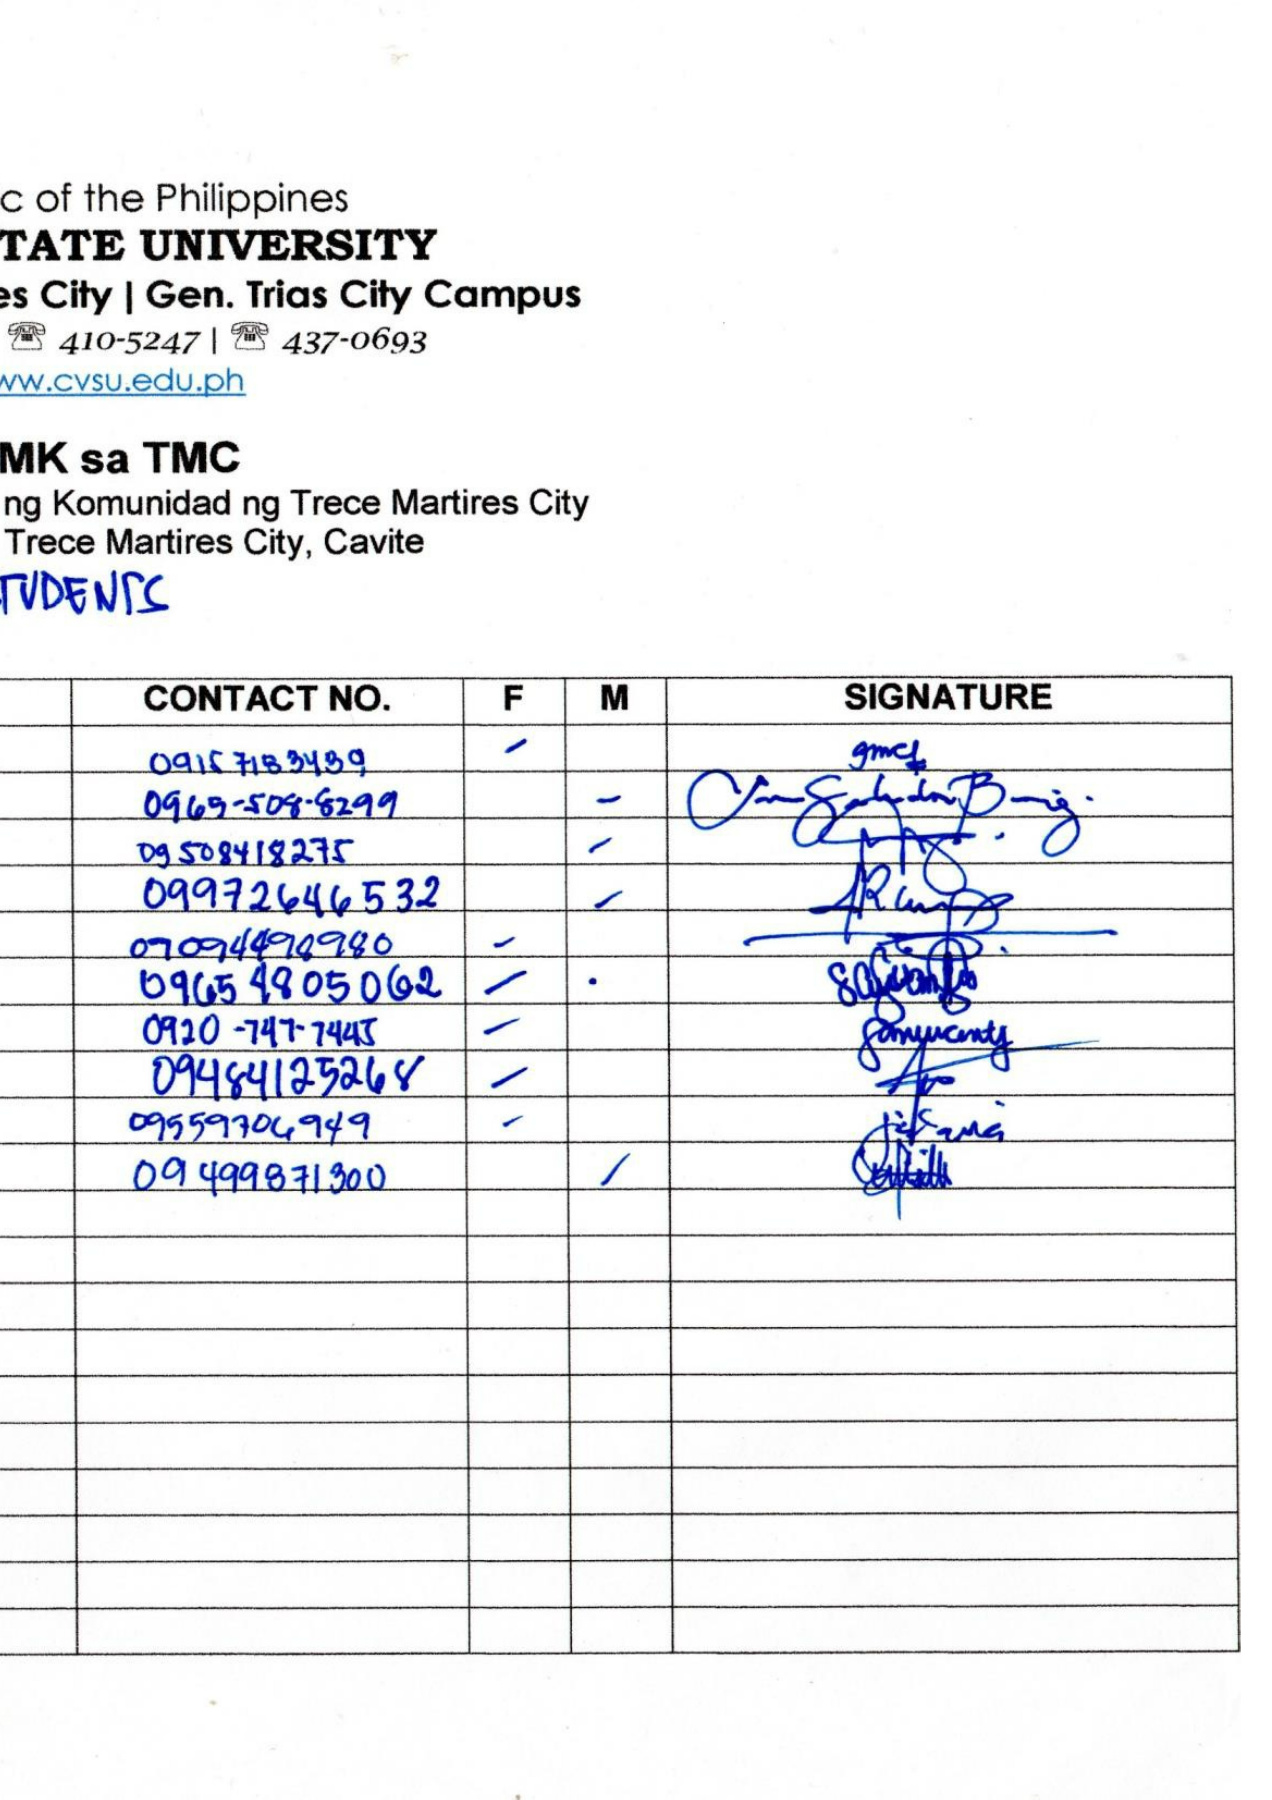 c of the Philippines
TATE UNIVERSITY
es City | Gen. Trias City Campus
☏ 410-5247 | ☏ 437-0693
ww.cvsu.edu.ph
MK sa TMC
ng Komunidad ng Trece Martires City
Trece Martires City, Cavite
TUDENTS
CONTACT NO. F M SIGNATURE
09157183439
0965-508-8299
09508418275
09972646532
09654805062
0920-747-7445
09484125268
09559706949
09499871300